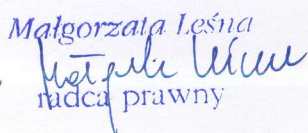 Małgorzata Leśna
radca prawny